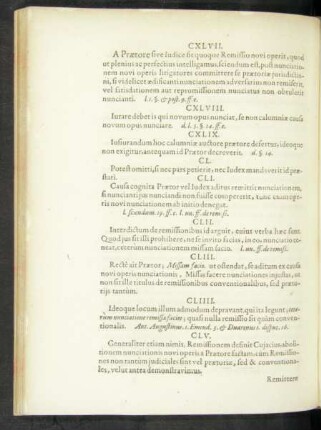 CXLVII.
A Prætore sive Iudice sit quoque Remissio novi operis, quod
ut plenius ac perfectius intelligamus, sciendum est, post nunciatio-
nem novi operis litigatores committere se prætoriæ jurisdictio-
ni, si videlicet ædificanti nunciationem adversarius non remiserit,
vel satisdationem aut repromissionem nunciatus non obtulerit
nuncianti. l. 1. §. & post. 9. ff. e.
CXLVIII.
Iurare debet is qui novum opus nunciat, se non calumniæ causa
novum opus nunciare. d. l. 5. §. 14. ff. e.
CXLIX.
Iusiurandum hoc calumniæ auctore prætore defertur: ideoque
non exigitur, antequam id Prætor decreverit. d. §. 14.
CL.
Potest omitti, si nec pars petierit, nec Iudex mandaverit id præ-
stari.
CLI.
Causa cognita Prætor vel Iudex aditus remittit nunciationem,
si nuncianti jus nunciandi non fuisse compererit, tunc enim ope-
ris novi nunciationem ab initio denegat.
l. ff. un. ff. de remiss.
CLII.
Interdictum de remissionibus id argnit, cuius verba hæc sunt.
Quod jus sit illi prohibere, ne se invito faciat, in eo, nunciatio te-
neat, cæterùm nunciationem missam facio. l. un. ff. de remiss.
CLIII.
Rectè ait Prætor; Missam facio, ut ostendat, se aditum ex causa
novi operis nunciationis, Missam facere nunciationem injustam, ut
non sit ille titulus de remissionibus conventionalibus, sed præto-
rijs tantùm.
CLIIII.
Ideoque locum illum admodum depravant, qui ita legunt,
nunciatione remissa facias; quasi nulla remissio sit quàm conven-
tionalis. Ant. Augustinus. 1. Emend. 3. & Duarenus 1. disput. 16.
CLV.
Generaliter etiam nimis, Remissionem definit Cujacius, aboli-
tionem nunciationis novi operis à Prætore factam, cùm Remissio-
nes non tantùm judiciales sint vel prætoriæ, sed & conventiona-
les, velut antea demonstravimus.
Remittere